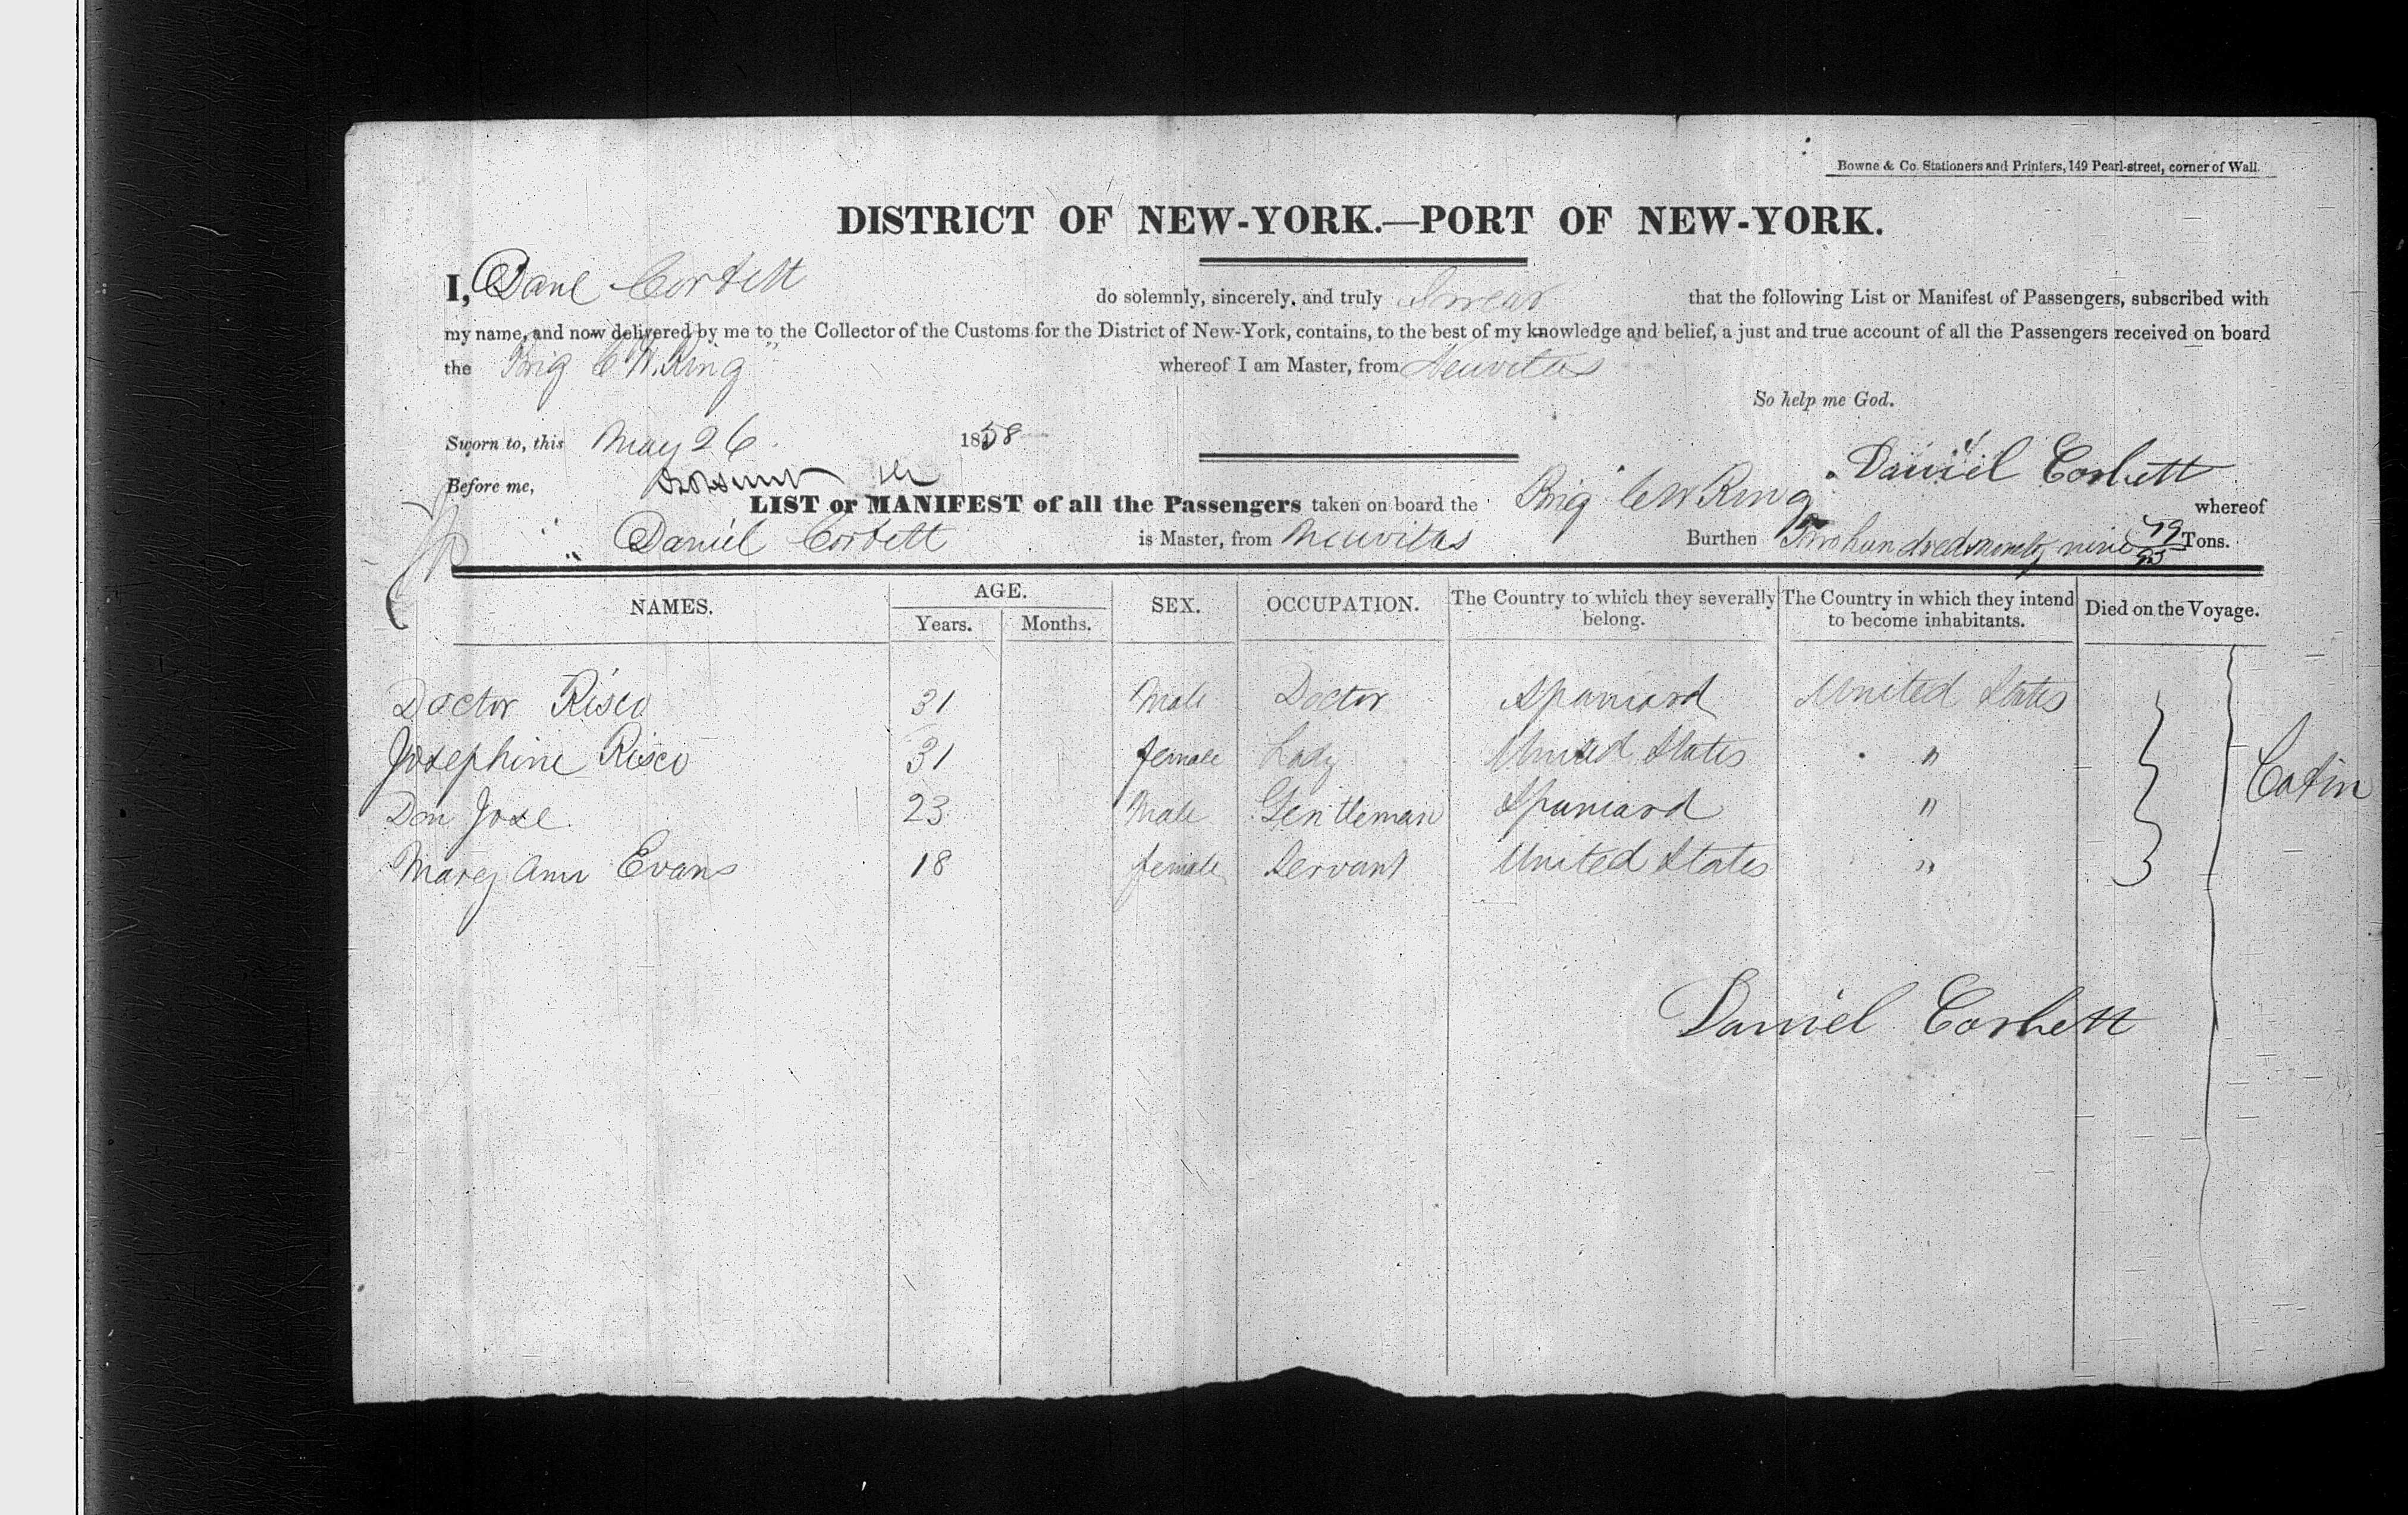 Bowne & Co. Stationers and Printers, 149 Pearl-street, corner of Wall.
DISTRICT OF NEW-YORK.—PORT OF NEW-YORK.
I, Danl Corbett do solemnly, sincerely, and truly Swear that the following List or Manifest of Passengers, subscribed with
my name, and now delivered by me to the Collector of the Customs for the District of New-York, contains, to the best of my knowledge and belief, a just and true account of all the Passengers received on board
the Brig "C W. King" whereof I am Master, from Neuvitas
So help me God.
Sworn to, this May 26 1858
Daniel Corbett
Before me,
LIST or MANIFEST of all the Passengers taken on board the Brig C W King whereof
Daniel Corbett is Master, from Neuvitas Burthen Two hundred ninety nine 79/95 Tons.
NAMES. AGE. SEX. OCCUPATION. The Country to which they severally belong. The Country in which they intend to become inhabitants. Died on the Voyage.
Years. Months.
Doctor Risco 31 Male Doctor Spaniard United States
Josephine Risco 31 female Lady United States "
Don Jose 23 Male Gentleman Spaniard "
Mary Ann Evans 18 female Servant United States "
Cabin
Daniel Corbett